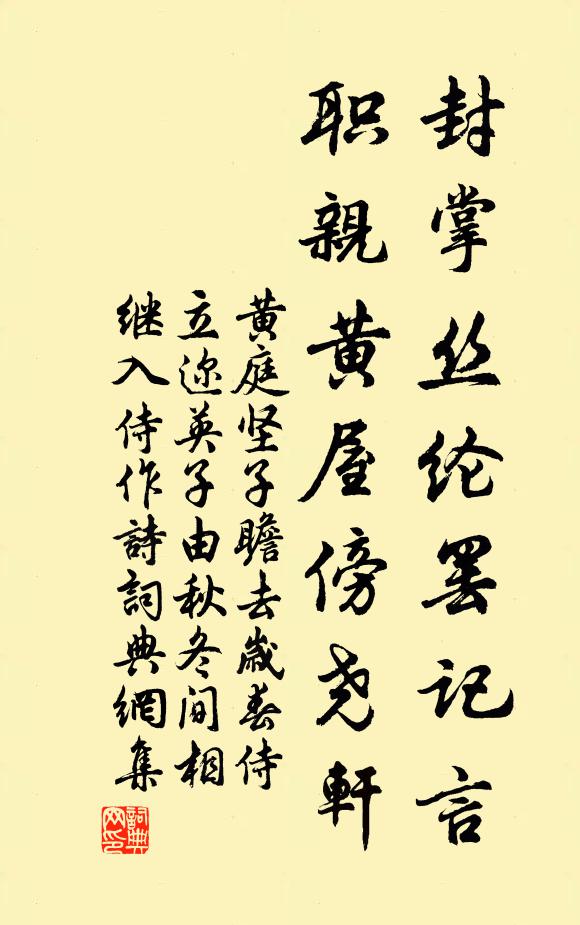 封掌丝纶罢记言
职親黄屋傍尧軒
黄庭坚子瞻去歲春侍
立迩英子由秋冬间相
继入侍作詩詞典網集
詞典
网印